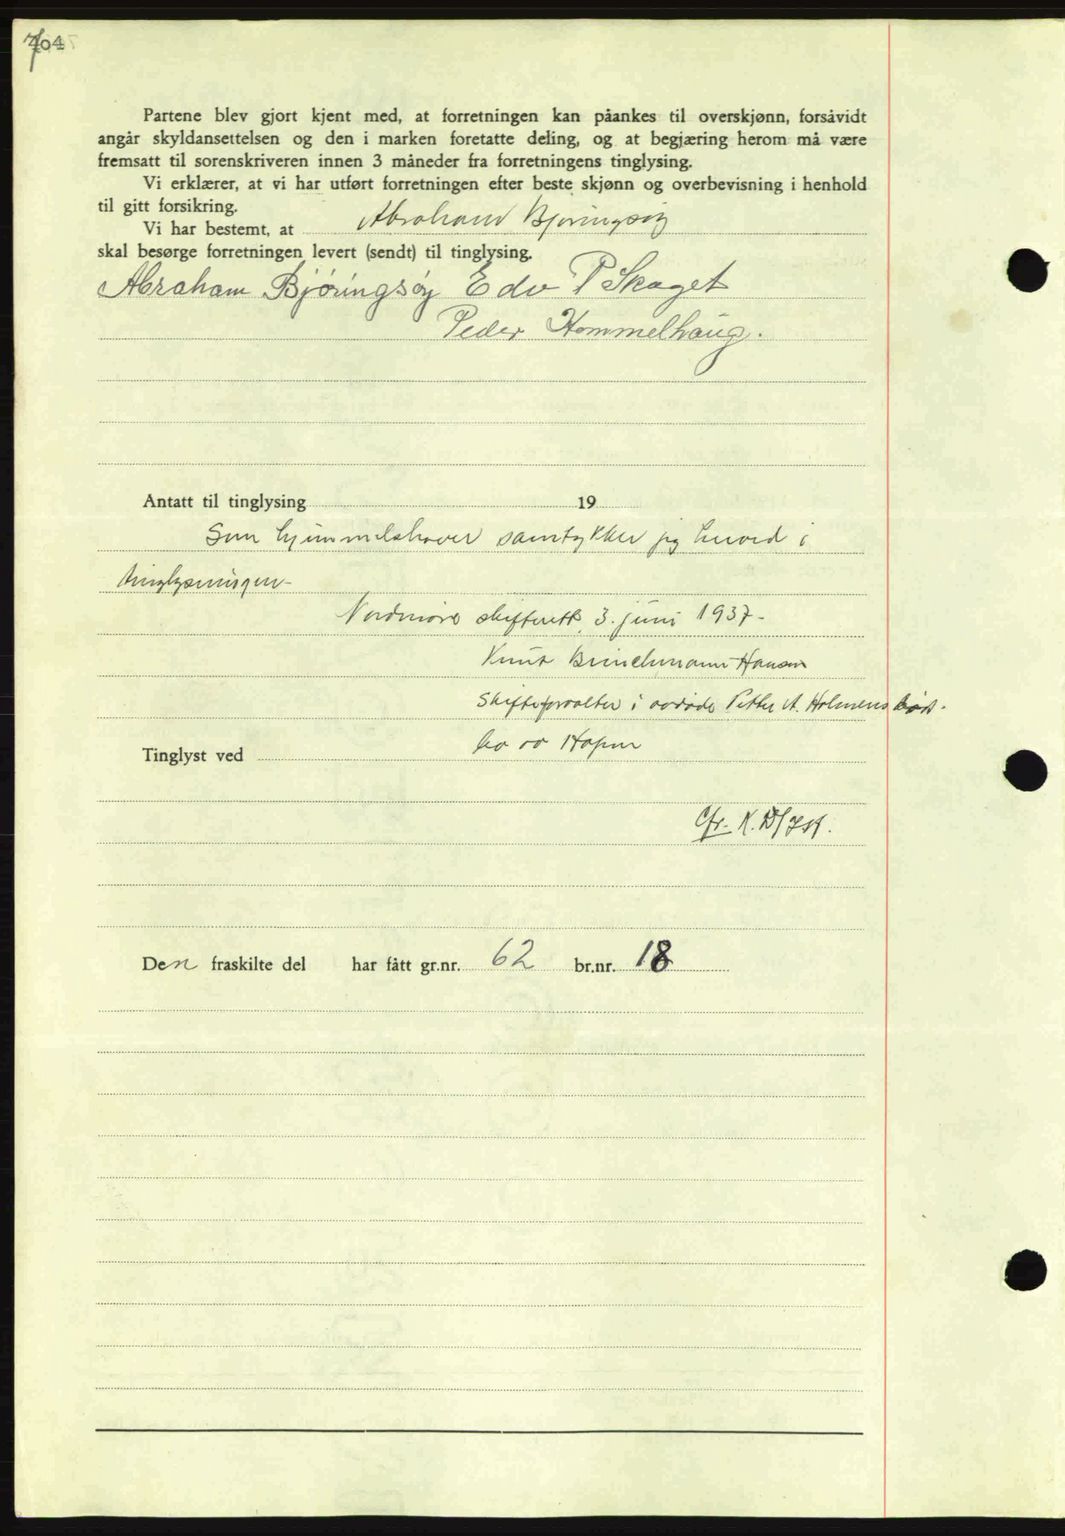 704
Partene blev gjort kjent med, at forretningen kan påankes til overskjønn, forsåvidt
angår skyldansettelsen og den i marken foretatte deling, og at begjæring herom må være
fremsatt til sorenskriveren innen 3 måneder fra forretningens tinglysing.
Vi erklærer, at vi har utført forretningen efter beste skjønn og overbevisning i henhold
til gitt forsikring.
Vi har bestemt, at Abraham Bjøringsøy
skal besørge forretningen levert (sendt) til tinglysing.
Abraham Bjøringsøy Edv P Skaget
Peder Hommelhaug.
Antatt til tinglysing 19
Som hjemmelshaver samtykker jeg herved i
tinglysningen-
Nordmøre skifterett, 3. juni 1937-
Knut Brinchmann Hansen
Skifteforvalter i avdøde Petter A. Holmens
bo
Tinglyst ved
Cfr.
Den fraskilte del har fått gr.nr. 62 br.nr. 18